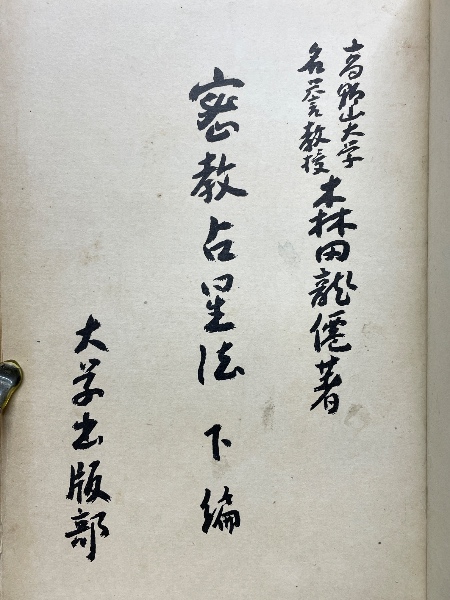 高野山大学
名誉教授
森田龍僊著
密教占星法 下編
大学出版部